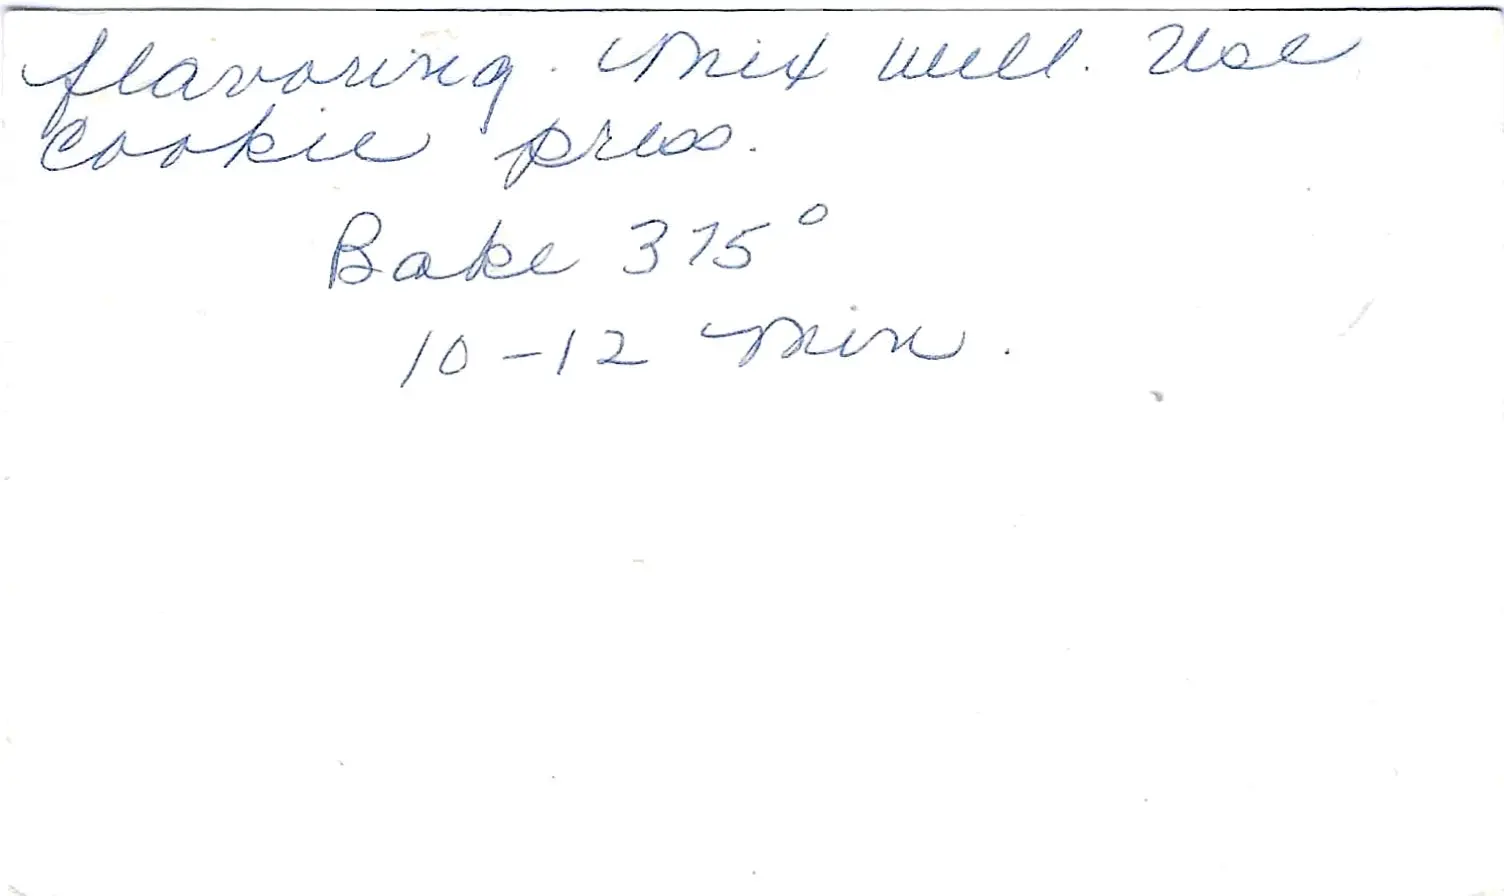 flavoring. Mix well. Use
cookie press.
Bake 375°
10-12 Min.